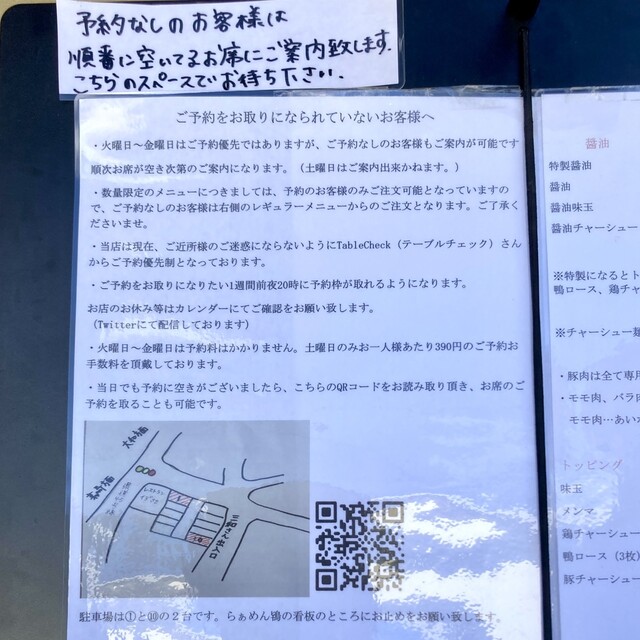 予約なしのお客様は
順番に空いてるお席にご案内致します.
こちらのスペースでお待ち下さい.
ご予約をお取りになられていないお客様へ
・火曜日～金曜日はご予約優先ではありますが、ご予約なしのお客様もご案内が可能です
順次お席が空き次第のご案内になります。（土曜日はご案内出来かねます。）
・数量限定のメニューにつきましては、予約のお客様のみご注文可能となっていますの
で、ご予約なしのお客様は右側のレギュラーメニューからのご注文となります。ご了承く
ださいませ。
・当店は現在、ご近所様のご迷惑にならないようにTableCheck（テーブルチェック）さん
からご予約優先制となっております。
・ご予約をお取りになりたい1週間前夜20時に予約枠が取れるようになります。
お店のお休み等はカレンダーにてご確認をお願い致します。
（Twitterにて配信しております）
・火曜日～金曜日は予約料はかかりません。土曜日のみお一人様あたり390円のご予約お
手数料を頂戴しております。
・当日でも予約に空きがございましたら、こちらのQRコードをお読み取り頂き、お席のご
予約を取ることも可能です。
大和橋
駐車場は①と⑩の２台です。らぁめん鴇の看板のところにお止めをお願い致します。
醤油
特製醤油
醤油
醤油味玉
醤油チャーシュー
※特製になるとト
鴨ロース、鶏チャ
※チャーシュー麺
・豚肉は全て専用
・モモ肉、バラ肉
モモ肉…あい
トッピング
味玉
メンマ
鶏チャーシュー
鴨ロース（3枚）
豚チャーシュー